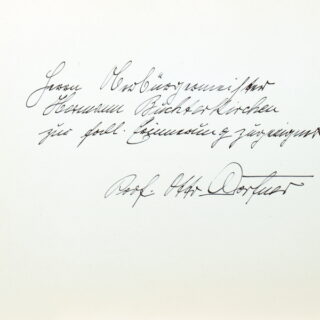 Herrn Oberbürgermeister
Hermann Büchterkirchen
zur frdl. Erinnerung zugeeignet
Prof. Otto Dorfner